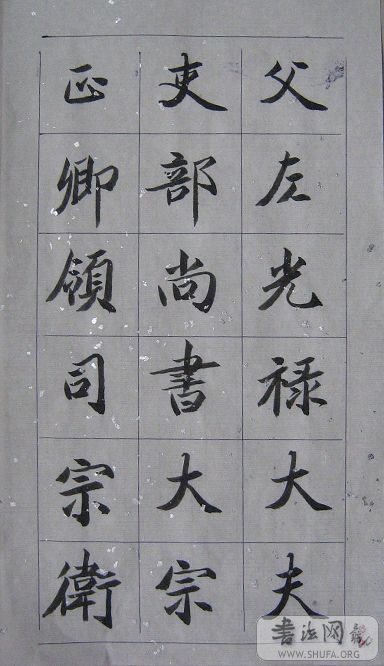 父左光禄大夫
吏部尚書大宗
正卿領司宗衛
书法网
WWW.SHUFA.ORG